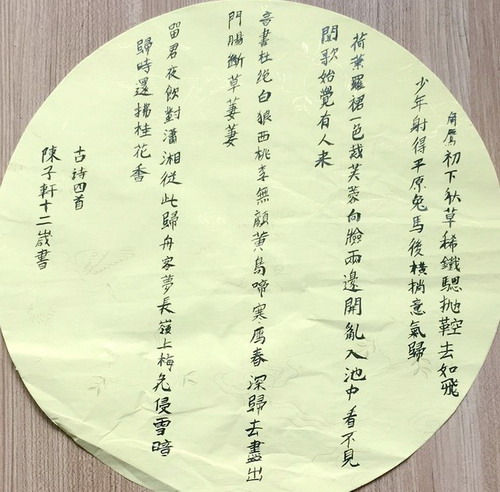 角鷹初下秋草稀鐵驄抛鞚去如飛
少年射得平原兔馬後橫捎意氣歸
荷葉羅裙一色裁芙蓉向臉兩邊開亂入池中看不見
聞歌始覺有人来
音書杜絕白狼西桃李無顏黃鳥啼寒鴈春深歸去盡出
門腸斷草萋萋
留君夜飲對瀟湘從此歸舟客夢長嶺上梅花侵雪暗
歸時還拂桂花香
古詩四首
陳子軒十二歲書